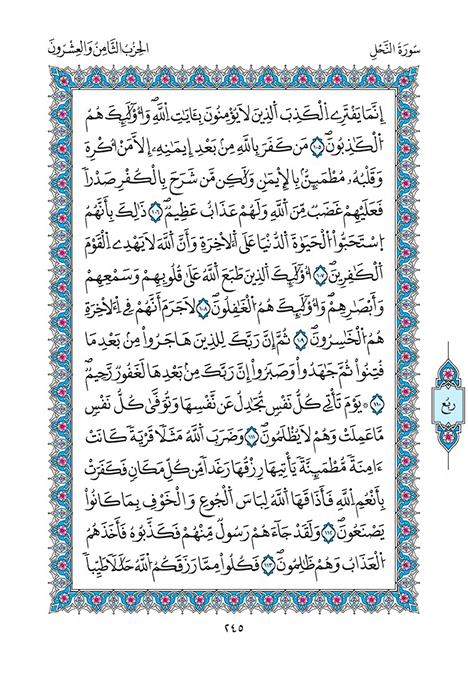 سُورَةُ النَّحْلِ
الحِزْبُ الثَّامِنُ وَالْعِشْرُونَ
إِنَّمَا يَفْتَرِے اِ۬لْكَذِبَ اَ۬لذِينَ لَا يُؤْمِنُونَ بِـَٔايَٰتِ اِ۬للَّهِ وَأُوْلَٰٓئِكَ هُمُ
اُ۬لْكَٰذِبُونَۖ ١٠٥ مَن كَفَرَ بِاللَّهِ مِنۢ بَعْدِ إِيمَٰنِهِۦٓ إِلَّا مَنُ ا۟كْرِهَ
وَقَلْبُهُۥ مُطْمَئِنٌّۢ بِالْإِيمَٰنِ وَلَٰكِن مَّن شَرَحَ بِالْكُفْرِ صَدْراٗ
فَعَلَيْهِمْ غَضَبٌ مِّنَ اَ۬للَّهِ وَلَهُمْ عَذَابٌ عَظِيمٌۖ ١٠٦ ذَٰلِكَ بِأَنَّهُمُ
اُ۪سْتَحَبُّواْ اُ۬لْحَيَوٰةَ اَ۬لدُّنْيَا عَلَى اَ۬لْأٓخِرَةِ وَأَنَّ اَ۬للَّهَ لَا يَهْدِے اِ۬لْقَوْمَ
اَ۬لْكَٰفِرِينَۖ ١٠٧ أُوْلَٰٓئِكَ اَ۬لذِينَ طَبَعَ اَ۬للَّهُ عَلَىٰ قُلُوبِهِمْ وَسَمْعِهِمْ
وَأَبْصَٰرِهِمْۖ وَأُوْلَٰٓئِكَ هُمُ اُ۬لْغَٰفِلُونَۖ ١٠٨ لَا جَرَمَ أَنَّهُمْ فِے اِ۬لْأٓخِرَةِ
هُمُ اُ۬لْخَٰسِرُونَۖ ١٠٩ ثُمَّ إِنَّ رَبَّكَ لِلذِينَ هَاجَرُواْ مِنۢ بَعْدِ مَا
فُتِنُواْ ثُمَّ جَٰهَدُواْ وَصَبَرُوٓاْ إِنَّ رَبَّكَ مِنۢ بَعْدِهَا لَغَفُورٌ رَّحِيمٌۖ
١١٠ ۞ يَوْمَ تَأْتِے كُلُّ نَفْسٖ تُجَٰدِلُ عَن نَّفْسِهَا وَتُوَفَّىٰ كُلُّ نَفْسٖ
مَّا عَمِلَتْ وَهُمْ لَا يُظْلَمُونَۖ ١١١ وَضَرَبَ اَ۬للَّهُ مَثَلاٗ قَرْيَةٗ كَانَتْ
ءَامِنَةٗ مُّطْمَئِنَّةٗ يَأْتِيهَا رِزْقُهَا رَغَداٗ مِّن كُلِّ مَكَانٖ فَكَفَرَتْ
بِأَنْعُمِ اِ۬للَّهِ فَأَذَٰقَهَا اَ۬للَّهُ لِبَاسَ اَ۬لْجُوعِ وَالْخَوْفِ بِمَا كَانُواْ
يَصْنَعُونَۖ ١١٢ وَلَقَدْ جَآءَهُمْ رَسُولٌ مِّنْهُمْ فَكَذَّبُوهُ فَأَخَذَهُمُ
اُ۬لْعَذَابُ وَهُمْ ظَٰلِمُونَۖ ١١٣ فَكُلُواْ مِمَّا رَزَقَكُمُ اُ۬للَّهُ حَلَٰلاٗ طَيِّباٗ
ربع
٢٤٥